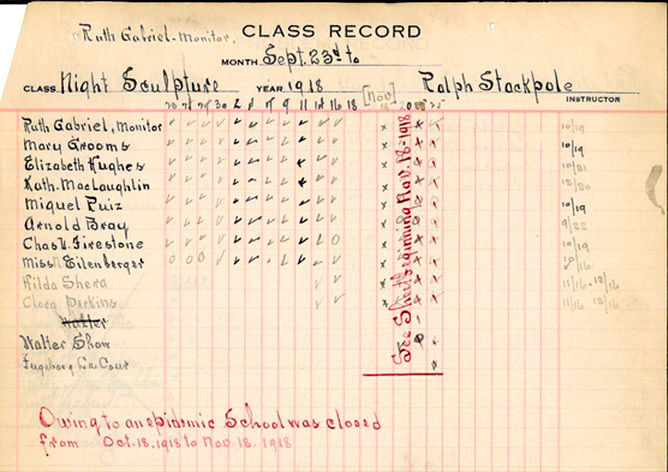 Ruth Gabriel - Monitor.
CLASS RECORD
MONTH Sept. 23d to
CLASS Night Sculpture YEAR 1918 [Nov] Ralph Stackpole
INSTRUCTOR
30 2 9 11 16 18
Ruth Gabriel, Monitor 10/19
Mary Grooms 10/19
Elizabeth Hughes 10/21
Kath. MacLaughlin
Miguel Ruiz 10/19
Arnold Bray 9/22
Chas. Firestone 10/19
Miss Eilenberger 10/16
Hilda Shera 11/16 - 12/16
Clara Perkins 11/16 12/16
Walter
Walter Shaw
Ingeborg La Cour
See Sheet beginning Nov. 18-1918
Owing to an epidemic School was closed
from Oct. 18, 1918 to Nov. 18. 1918